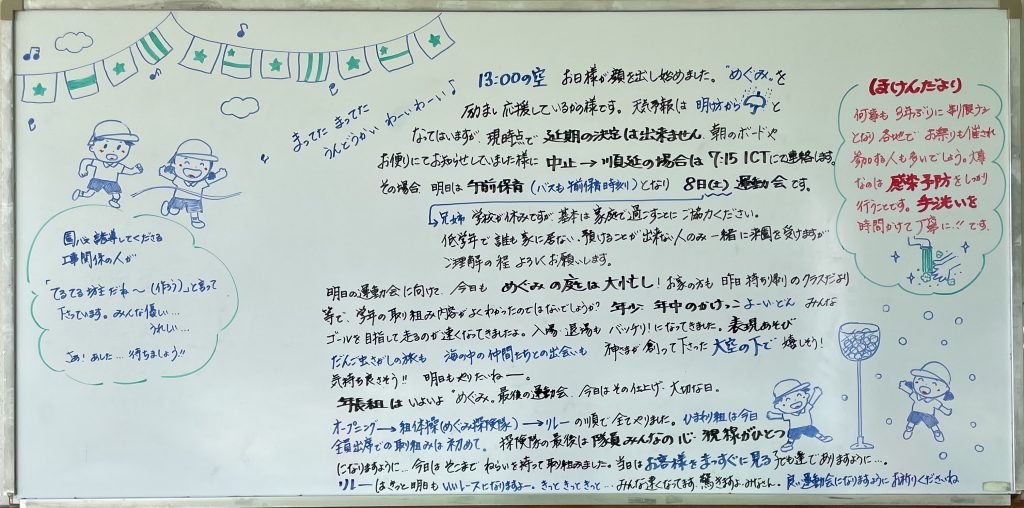 まってた まってた
うんどうかい わーいわーい♪
13:00の空 お日様が顔を出し始めました。"めぐみ"を
励まし応援しているかの様です。天気予報は 明け方から と
なってはいますが、現時点で 延期の決定は出来ません。朝のボードや
お便りにてお知らせしていました様に 中止→順延の場合は 7:15 ICTにて連絡します。
その場合 明日は 午前保育(バスも午前保育時刻)となり 8日(土)運動会です。
兄姉 学校が休みですが、基本は家庭で過ごすことに ご協力ください。
低学年で誰も家に居ない、預けることが出来ない人のみ一緒に来園を受けますが
ご理解の程 よろしくお願いします。
明日の運動会に向けて、今日も めぐみの庭は大忙し! お家の方も 昨日持ち帰りのクラスだより
等で、学年の取り組み内容がよくわかったのではないでしょうか? 年少 年中のかけっこ よーいどん みんな
ゴールを目指して走るのが速くなってきましたよ。入場・退場も バッチリ!になってきました。表現あそび
だんご虫さがしの旅も 海の中の仲間たちとの出会いも 神さまが創って下さった 大空の下で 嬉しそう!
気持ち良さそう!! 明日もやりたいねー。
年長組は いよいよ"めぐみ"最後の運動会、今日はその仕上げ、大切な日。
オープニング→組体操(めぐみ探険隊)→リレーの順で全てやりました。ひまわり組は今日
全員出席での取り組みは初めて。探険隊の最後は 隊員みんなの心・視線がひとつ
になりますように…今日はそこまで ねらいを持って取り組みました。当日は お客様をまっすぐに見る 子ども達でありますように…。
リレーはきっと明日も いいレースになりますよー。きっときっときっと…みんな速くなってます。驚きますよ、みなさん。良い運動会になりますように お祈りくださいね
園バスを誘導してくださる
工事関係の人が
「てるてる坊主だね〜(作ろう)」と言って
下さっています。みんな優しい…
うれしい…
さぁ! あした…待ちましょう!!
ほけんだより
何事も 3年ぶりに 制限ナシ
となり 各地で お祭りも催され
参加する人も多いでしょう。大事
なのは 感染予防をしっかり
行うことです。手洗いを
時間かけて丁寧に…!!です。